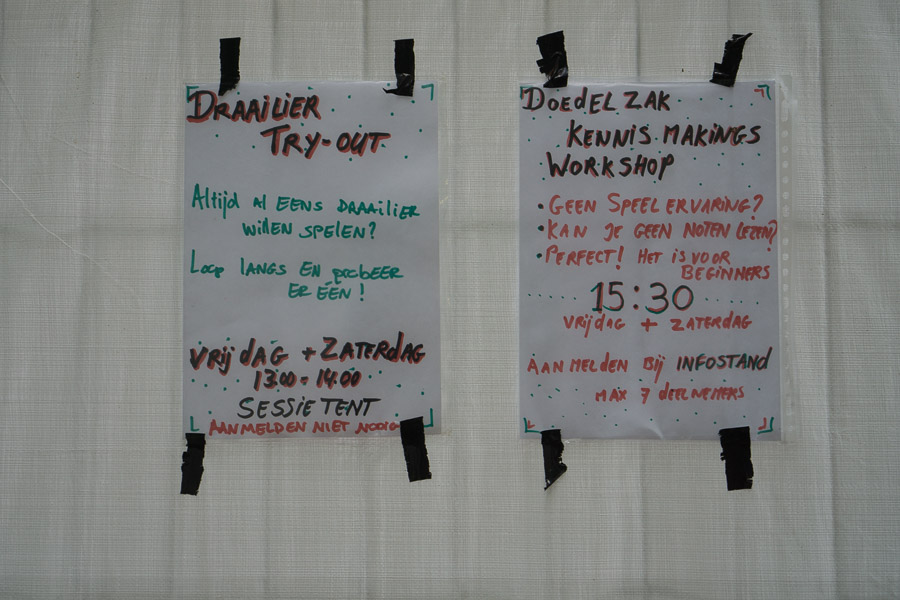 DRAAILIER
TRY-OUT
Altijd al EENS DRAAILIER
willEN SPELEN?
Loop langs EN probeer
ER ÉÉN!
VRijdAG + ZATERdAG
13:00 - 14:00
SESSIE TENT
AANMELDEN NIET NODIG
DOEdEL ZAK
KENNIS MAKINGS
WORKSHOP
• GEEN SPEEL ERVARING?
• KAN JE GEEN NOTEN LEZEN?
• PERFECT! HET IS VOOR
BEGINNERS
15:30
VRijdAG + ZATERDAG
AANMELDEN Bij INFOSTANd
MAX 7 dEELNEMERS